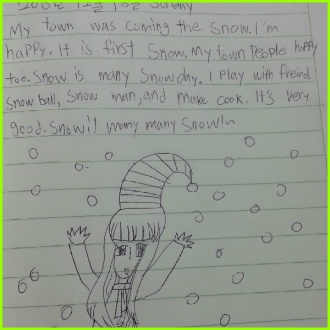 My town was coming the snow. I'm
happy. It is first snow. My town people happy
too. Snow is many Snowday. I play with freind,
snow ball, snow man, and make cook. It's very
good. Snow!! many many Snow!~